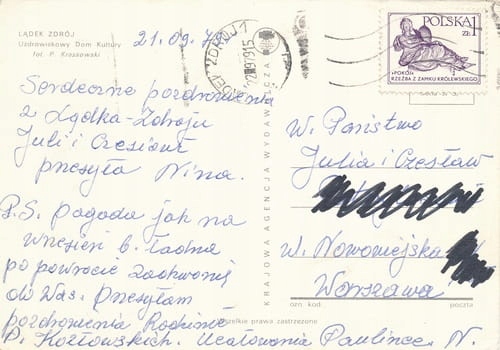 LĄDEK ZDRÓJ
Uzdrowiskowy Dom Kultury
fot. P. Krassowski
21.09.79
POLSKA 1
ZŁ
«POKÓJ»
RZEŹBA Z ZAMKU KRÓLEWSKIEGO
Serdeczne pozdrowienia
z Lądka-Zdroju
Juli i Czesławowi
przesyła Nina.
P.S. pogoda jak na
wrzesień b. ładna
po powrocie zadzwonię
do Was. Przesyłam
pozdrowienia Rodzinie
P. Kozłowskich. Ucałowania Paulince. N.
KRAJOWA AGENCJA WYDAWNICZA
W. Państwo
Julia i Czesław
ul. Nowomiejska
Warszawa
ozn. kod
poczta
Wszelkie prawa zastrzeżone